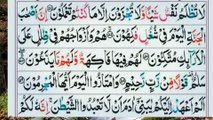 لَا تُظْلَمُ نَفْسٌ شَيْـًٔا وَّلَا تُجْزَوْنَ اِلَّا مَا كُنْتُمْ تَعْمَلُوْنَ ۝ اِنَّ اَصْحٰبَ
الْجَنَّةِ الْيَوْمَ فِيْ شُغُلٍ فٰكِهُوْنَ ۝ هُمْ وَاَزْوَاجُهُمْ فِيْ ظِلٰلٍ عَلَى
الْاَرَآئِكِ مُتَّكِـُٔوْنَ ۝ لَهُمْ فِيْهَا فَاكِهَةٌ وَّلَهُمْ مَّا يَدَّعُوْنَ ۝
سَلٰمٌ قَوْلًا مِّنْ رَّبٍّ رَّحِيْمٍ ۝ وَامْتَازُوا الْيَوْمَ اَيُّهَا الْمُجْرِمُوْنَ ۝
اَلَمْ اَعْهَدْ اِلَيْكُمْ يٰبَنِيْٓ اٰدَمَ اَنْ لَّا تَعْبُدُوا الشَّيْطٰنَ اِنَّهٗ لَكُمْ